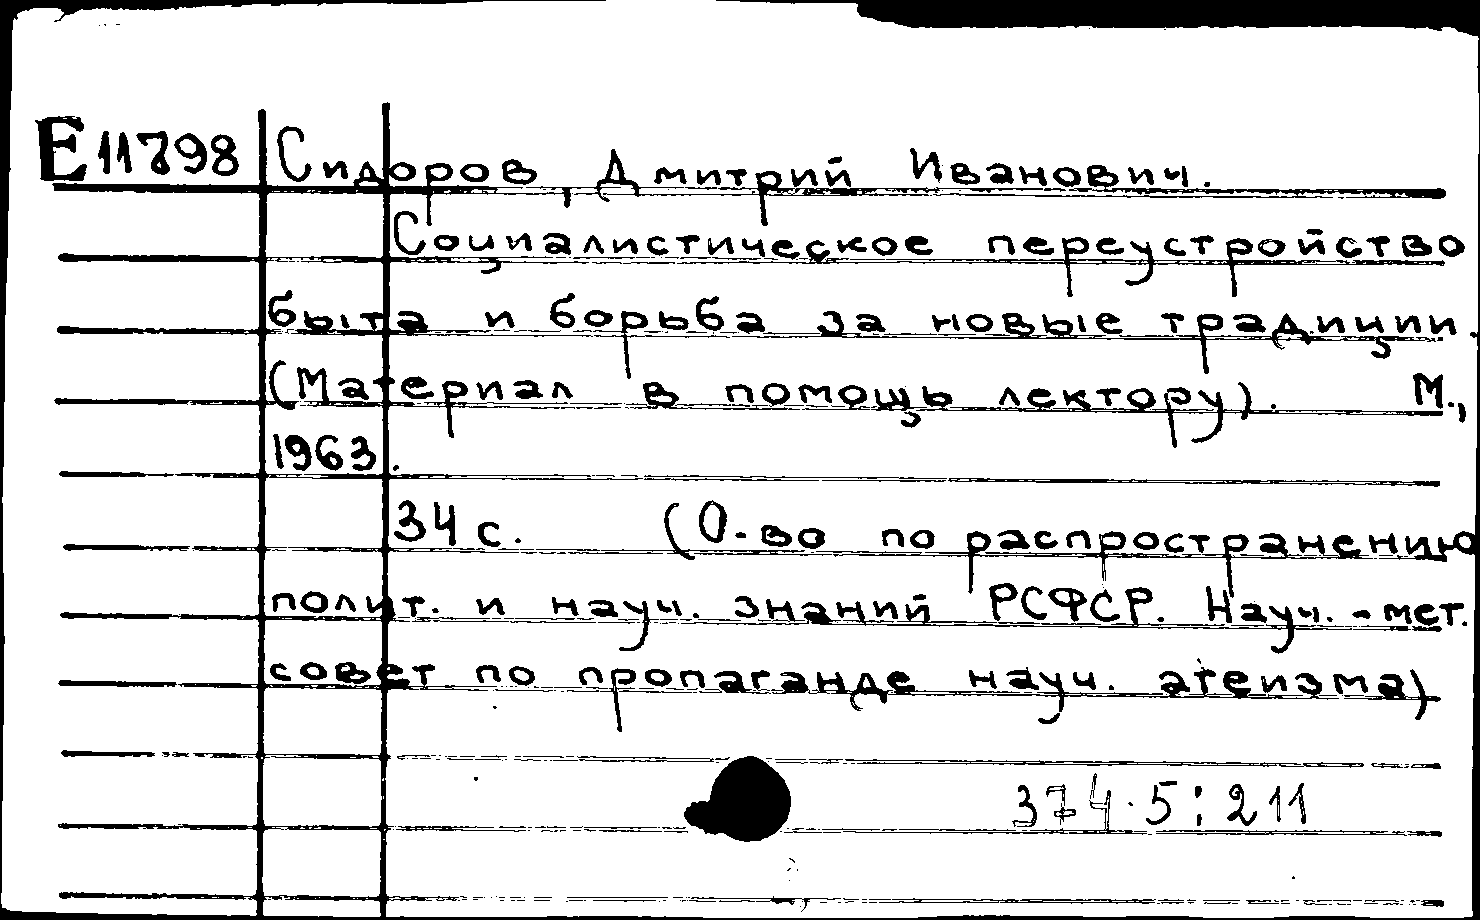 Е11798 Сидоров, Дмитрий Иванович.
Социалистическое переустройство
быта и борьба за новые традиции.
(Материал в помощь лектору). М.,
1963.
34 с. (О-во по распространению
полит. и науч. знаний РСФСР. Науч.-мет.
совет по пропаганде науч. атеизма)
374.5:211